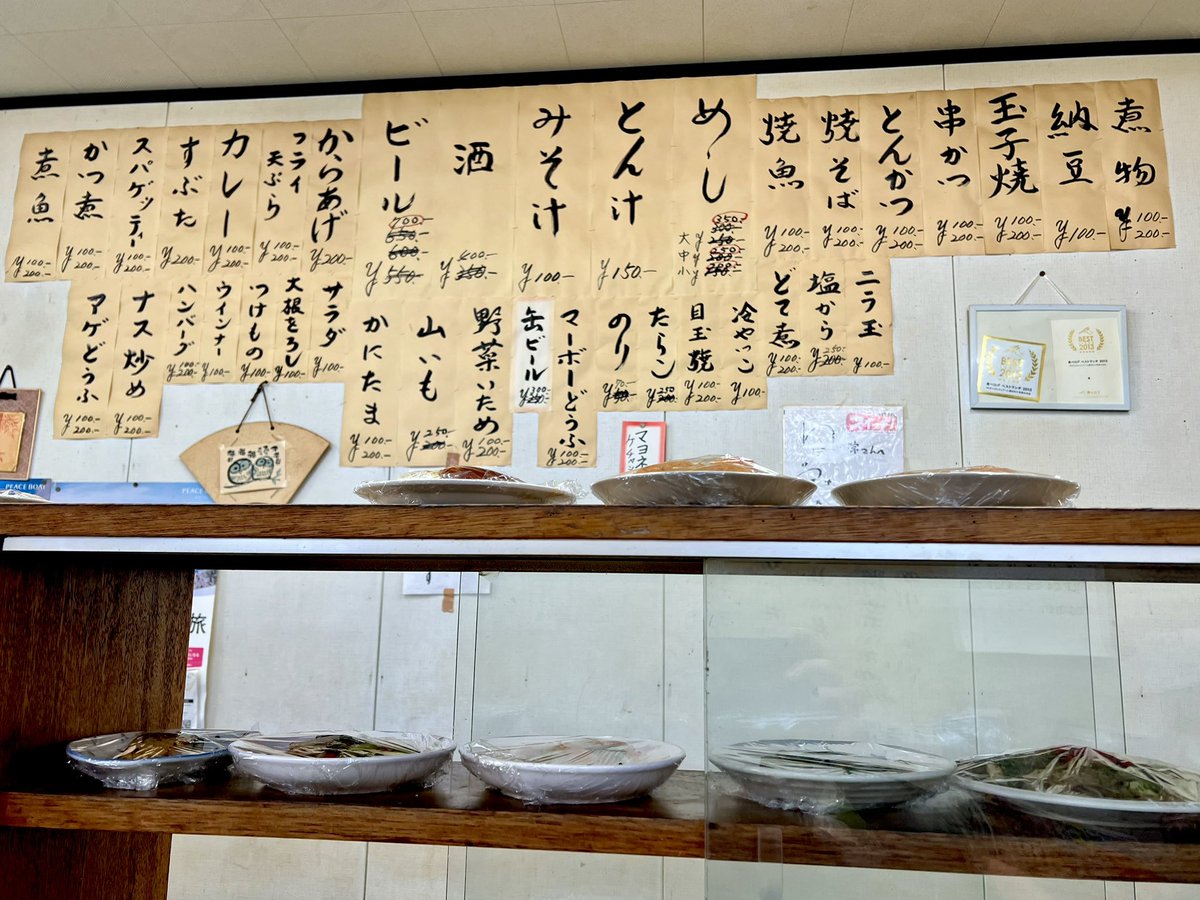 煮物
¥100.-
200.-
納豆
¥100.-
玉子焼
¥100.-
200.-
串かつ
¥100.-
200.-
とんかつ
¥100.-
200.-
焼そば
¥100.-
200.-
焼魚
¥100.-
200.-
めし
大
中
小
350.-
とん汁
¥150.-
みそ汁
¥100.-
酒
¥400.-
350.-
ビール
700.-
650.-
600.-
¥550.-
からあげ
¥200.-
フライ
天ぷら
¥100.-
200.-
カレー
¥100.-
200.-
すぶた
¥200.-
スパゲッティー
¥100.-
200.-
かつ煮
¥100.-
200.-
煮魚
¥100.-
200.-
ニラ玉
¥100.-
200.-
塩から
¥250.-
200.-
どて煮
¥100.-
200.-
冷やっこ
¥100.-
目玉焼
¥100.-
200.-
たらこ
¥250.-
のり
マーボーどうふ
¥100.-
200.-
缶ビール
野菜いため
¥100.-
200.-
山いも
¥250.-
200.-
かにたま
¥100.-
200.-
サラダ
¥100.-
大根おろし
¥100.-
つけもの
¥100.-
ウインナー
¥100.-
ハンバーグ
¥200.-
ナス炒め
¥100.-
200.-
アゲどうふ
¥100.-
200.-
BEST
2013
食べログ ベストランチ 2013
マヨネ
ケチャッ
PEACE BOAT
旅